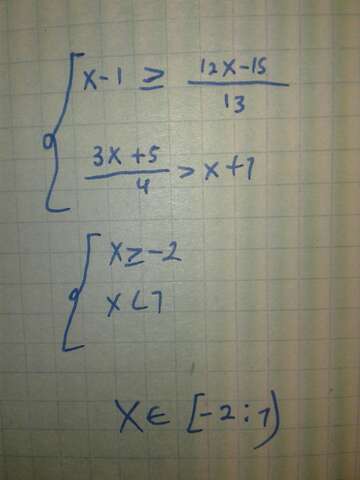 x-1 ≥ 12x-15/13
3x+5/4 > x+1
x ≥ -2
x < 1
x ∈ [-2:1)